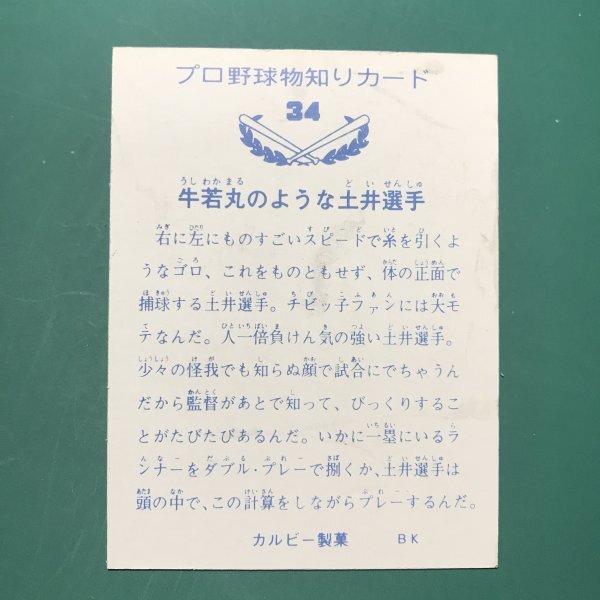 プロ野球物知りカード
34
牛若丸のような土井選手
右に左にものすごいスピードで糸を引くよ
うなゴロ、これをものともせず、体の正面で
捕球する土井選手。チビッ子ファンには大モ
テなんだ。人一倍負けん気の強い土井選手。
少々の怪我でも知らぬ顔で試合にでちゃうん
だから監督があとで知って、びっくりするこ
とがたびたびあるんだ。いかに一塁にいるラ
ンナーをダブル・プレーで捌くか、土井選手は
頭の中で、この計算をしながらプレーするんだ。
カルビー製菓 BK